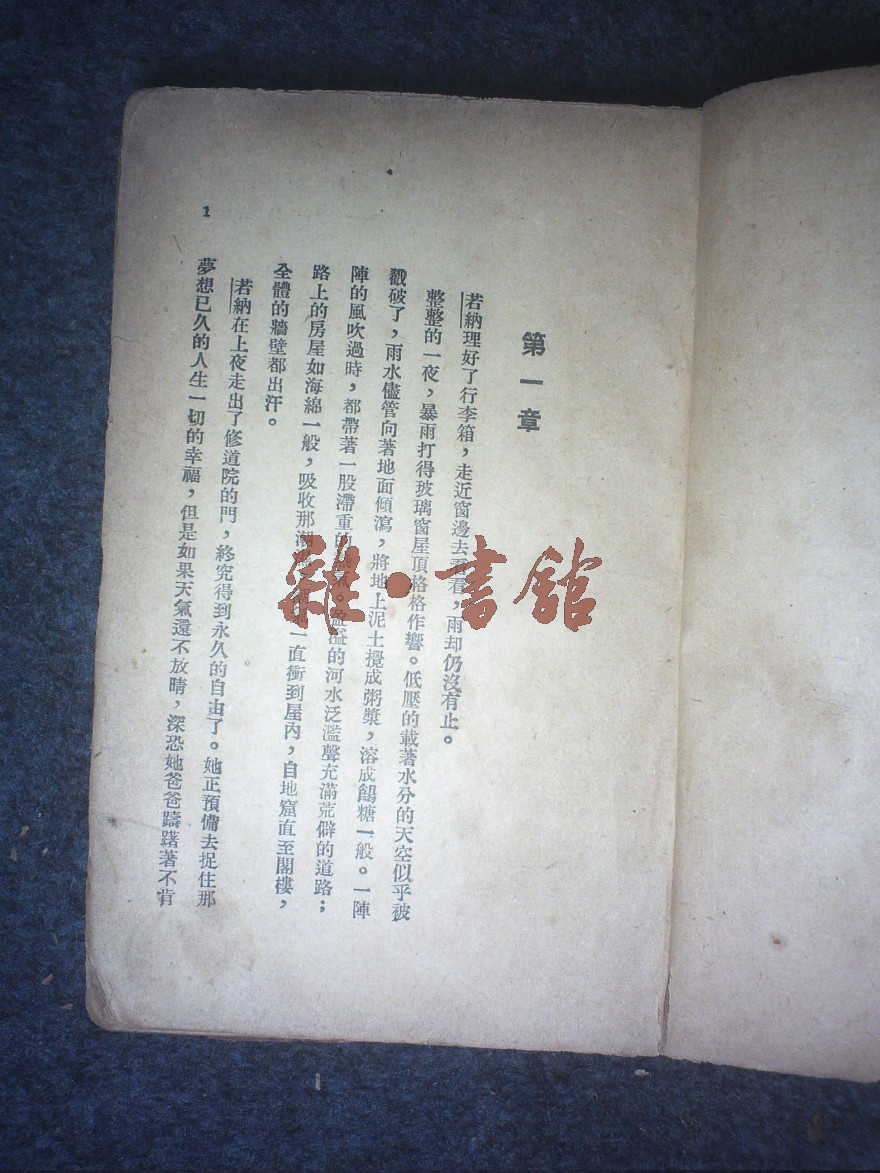 第一章
若納理好了行李箱，走近窗邊去看看，雨却仍沒有止。
整整的一夜，暴雨打得玻璃窗屋頂格格作響。低壓的載著水分的天空似乎被
戳破了，雨水儘管向著地面傾瀉，將地上泥土攪成粥漿，溶成餳糖一般。一陣
陣的風吹過時，都帶著一股滯重的熱氣。盈溢的河水泛濫聲充滿荒僻的道路；
路上的房屋如海綿一般，吸收那潮濕一直衝到屋內，自地窟直至閣樓，
全體的牆壁都出汗。
若納在上夜走出了修道院的門，終究得到永久的自由了。她正預備去捉住那
夢想已久的人生一切的幸福，但是如果天氣還不放晴，深恐她爸爸躊躇著不肯
1
雜·書館